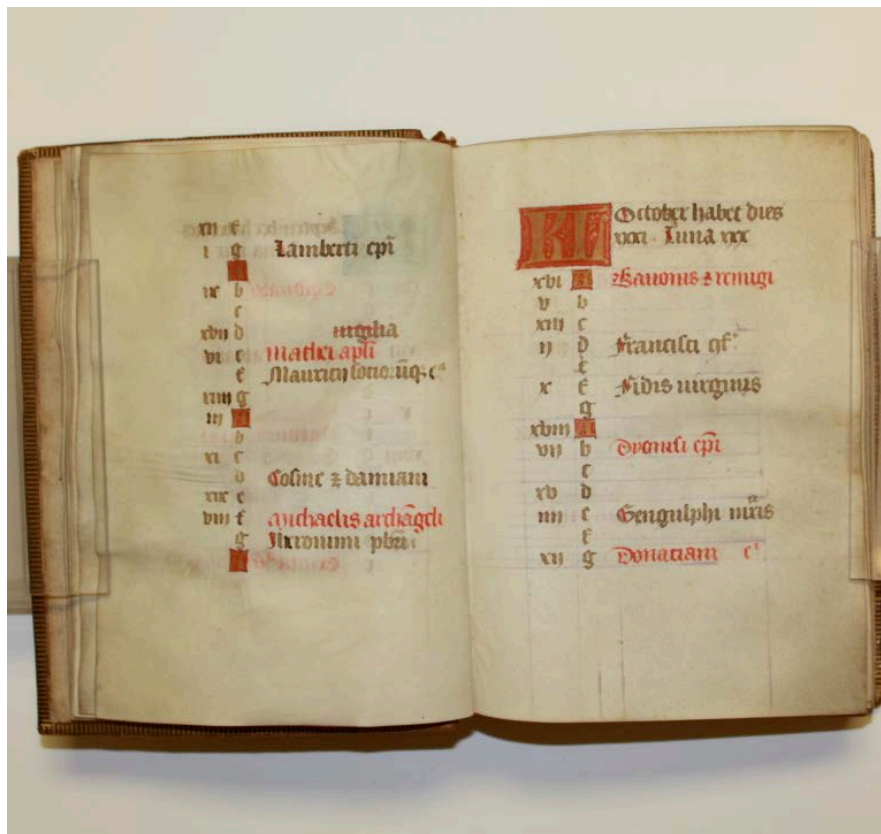 xii f
i g Lamberti ep̄i
A
ix b
c
xvii d uigilia
vi e Mathei apl̄i
f Mauricij socior̄ūq;
xiiii g
iii A
b
xi c
d Cosme ⁊ damiani
xix e
viii f Michaelis archāgeli
g Iheronimi pb̄ri
A
KL October habet dies
xxxi . Luna xxx
xvi A Bauonis ⁊ remigi
v b
xiii c
ii d Francisci
e
x f Fidis uirginis
g
xviii A
vii b Dyonisi ep̄i
c
xv d
iiii e Gengulphi mr̄is
f
xii g Donatiani